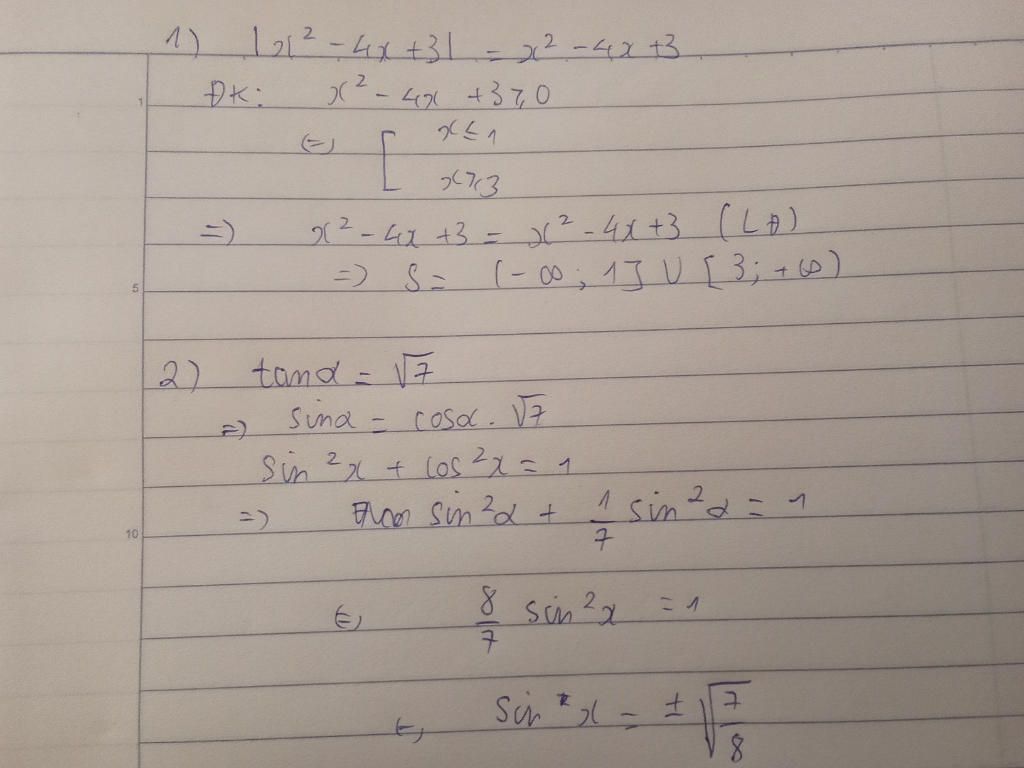 1) |x² - 4x + 3| = x² - 4x + 3
1
ĐK: x² - 4x + 3 ≥ 0
⇔ [ x ≤ 1
x ≥ 3
⇒ x² - 4x + 3 = x² - 4x + 3 (LĐ)
5
⇒ S = (-∞; 1] ∪ [3; +∞)
2) tanα = √7
⇒ sinα = cosα . √7
sin²x + cos²x = 1
⇒ sin²α + 1/7 sin²α = 1
10
⇔ 8/7 sin²x = 1
⇔ sin x = ± √(7/8)